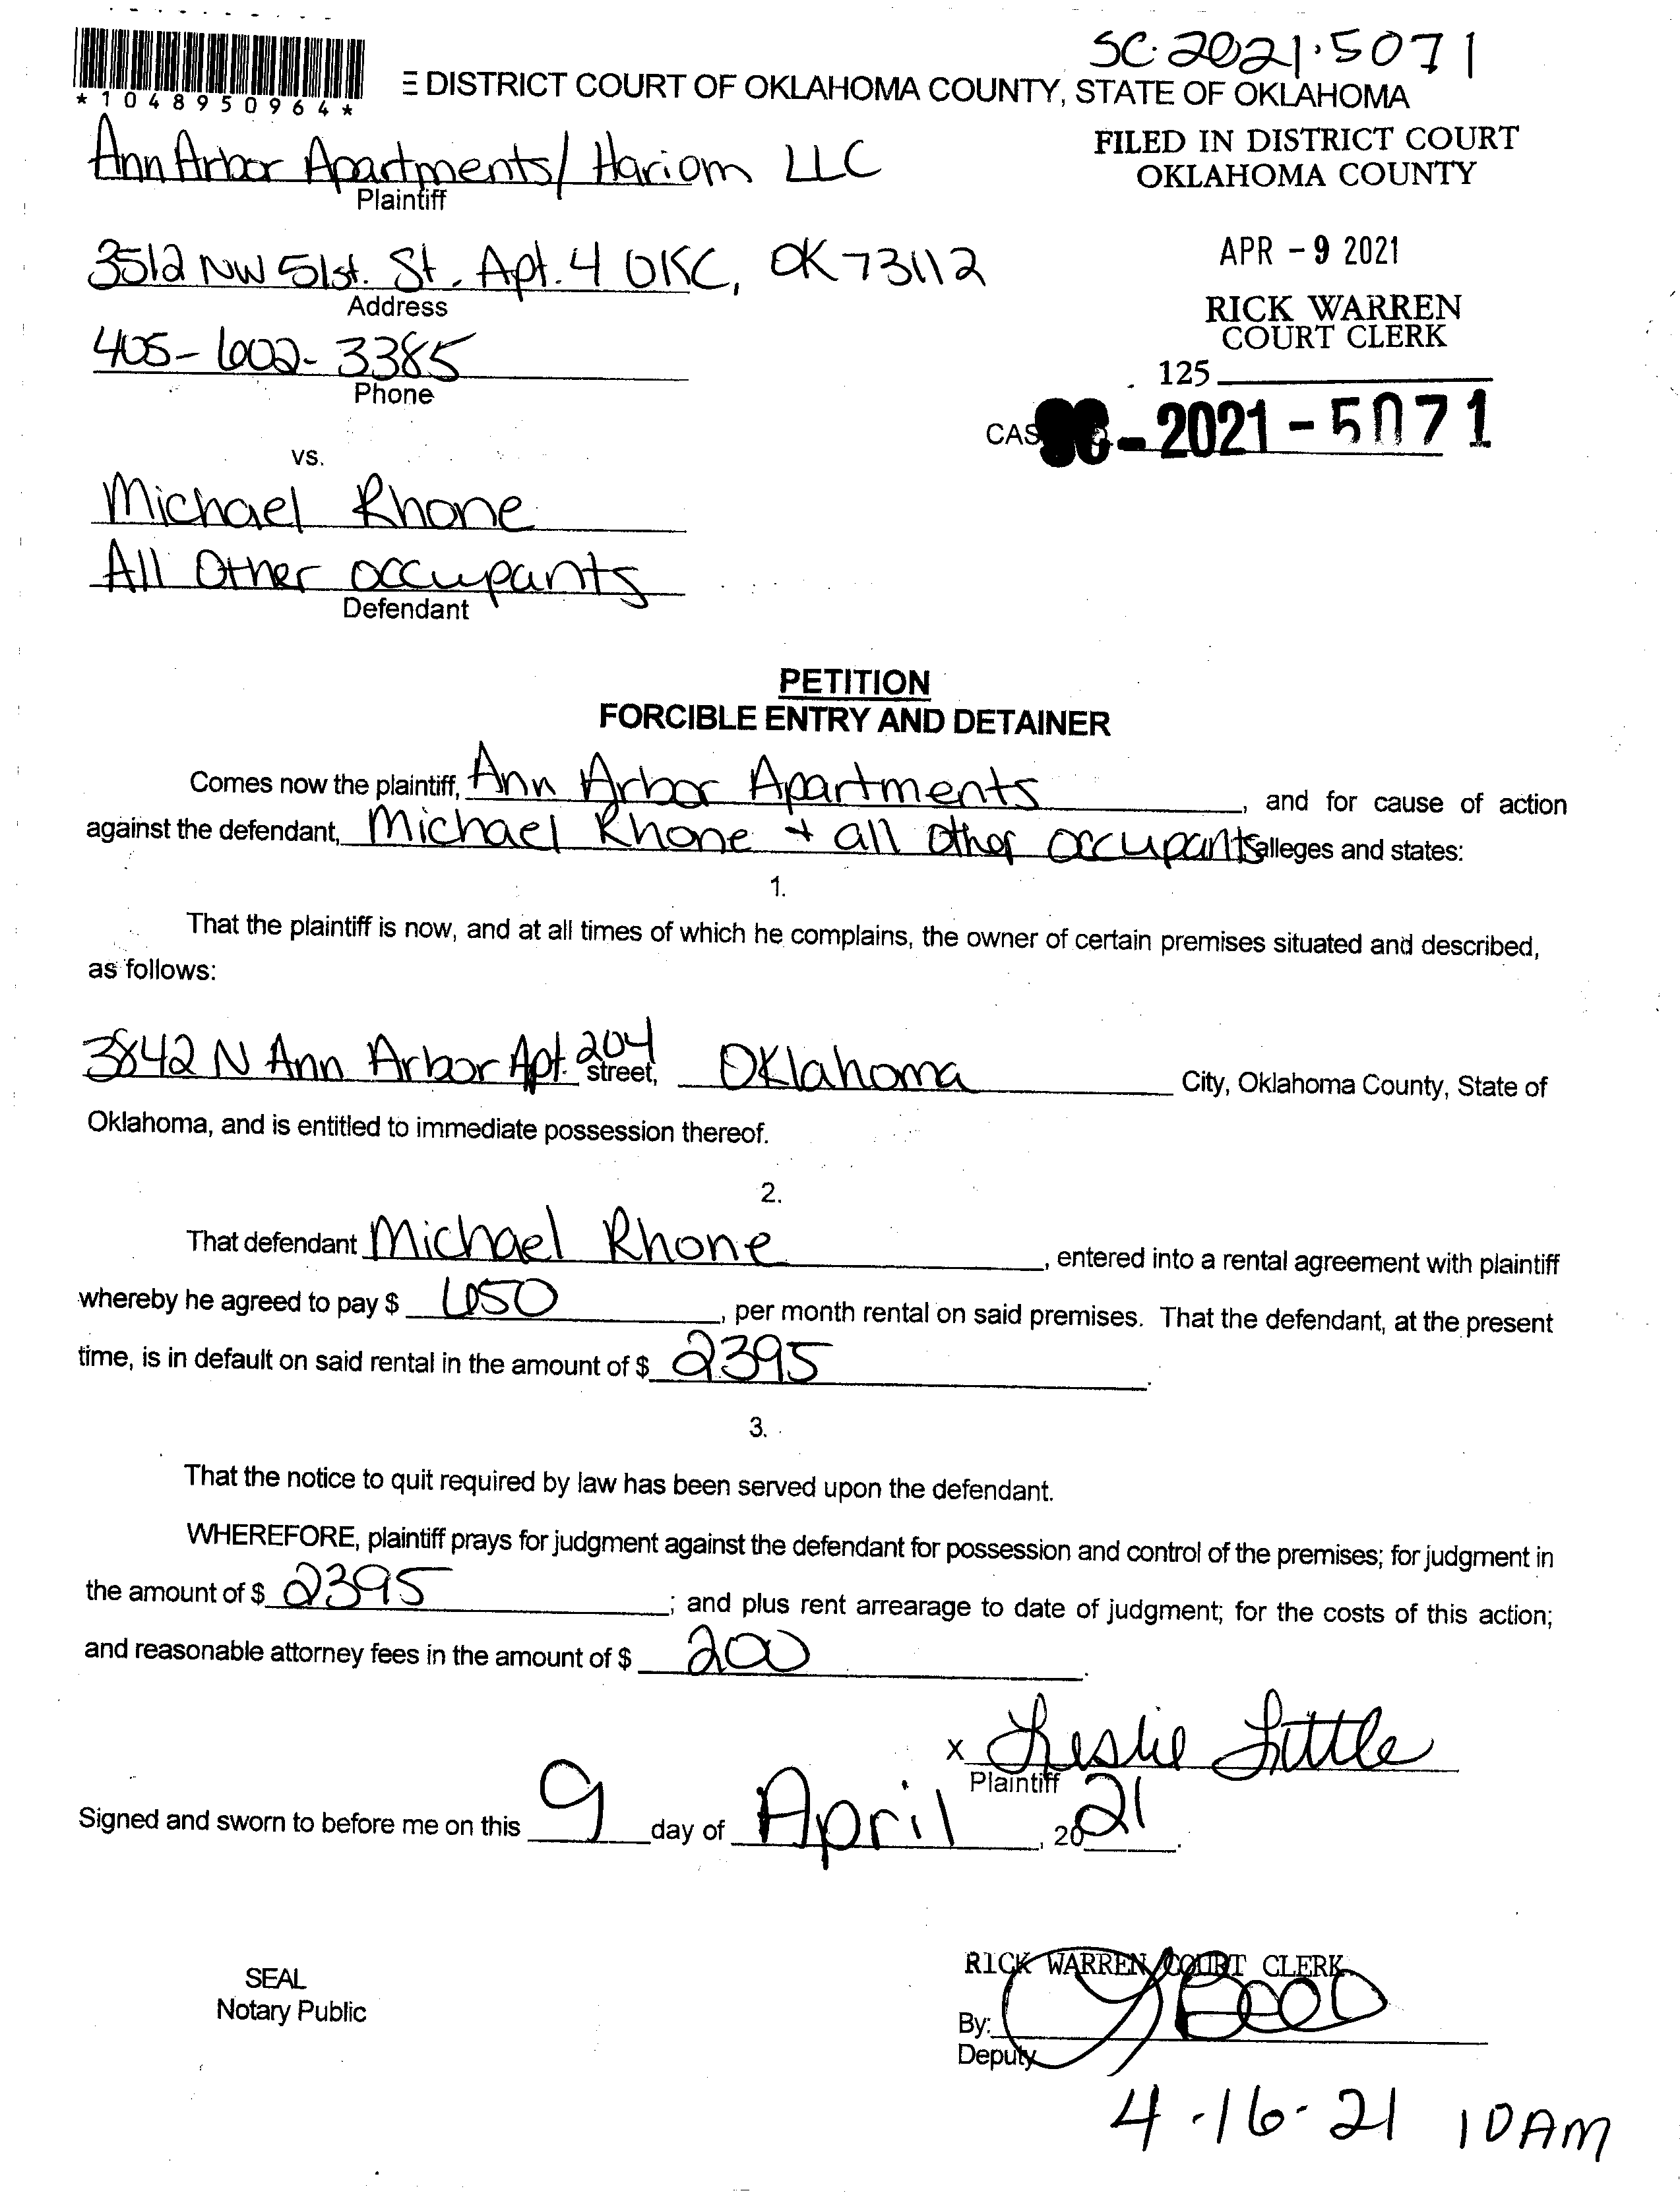 SC-2021-5071
*1048950964*
E DISTRICT COURT OF OKLAHOMA COUNTY, STATE OF OKLAHOMA
Ann Arbor Apartments/ Hariom LLC
Plaintiff
FILED IN DISTRICT COURT
OKLAHOMA COUNTY
3512 NW 51st. St. Apt. 4 OKC, OK 73112
Address
APR - 9 2021
405-602-3385
Phone
RICK WARREN
COURT CLERK
125
SC - 2021 - 5071
vs.
Michael Rhone
All Other occupants
Defendant
PETITION
FORCIBLE ENTRY AND DETAINER
Comes now the plaintiff, Ann Arbor Apartments, and for cause of action
against the defendant, Michael Rhone + all other occupants alleges and states:
1.
That the plaintiff is now, and at all times of which he complains, the owner of certain premises situated and described,
as follows:
3842 N Ann Arbor Apt. 204 street, Oklahoma City, Oklahoma County, State of
Oklahoma, and is entitled to immediate possession thereof.
2.
That defendant Michael Rhone, entered into a rental agreement with plaintiff
whereby he agreed to pay $ 650, per month rental on said premises. That the defendant, at the present
time, is in default on said rental in the amount of $ 2395.
3.
That the notice to quit required by law has been served upon the defendant.
WHEREFORE, plaintiff prays for judgment against the defendant for possession and control of the premises; for judgment in
the amount of $ 2395; and plus rent arrearage to date of judgment; for the costs of this action;
and reasonable attorney fees in the amount of $ 200.
x Leslie Little
Plaintiff
Signed and sworn to before me on this 9 day of April, 2021.
SEAL
Notary Public
RICK WARREN COURT CLERK
By:
Deputy
4-16-21 10AM